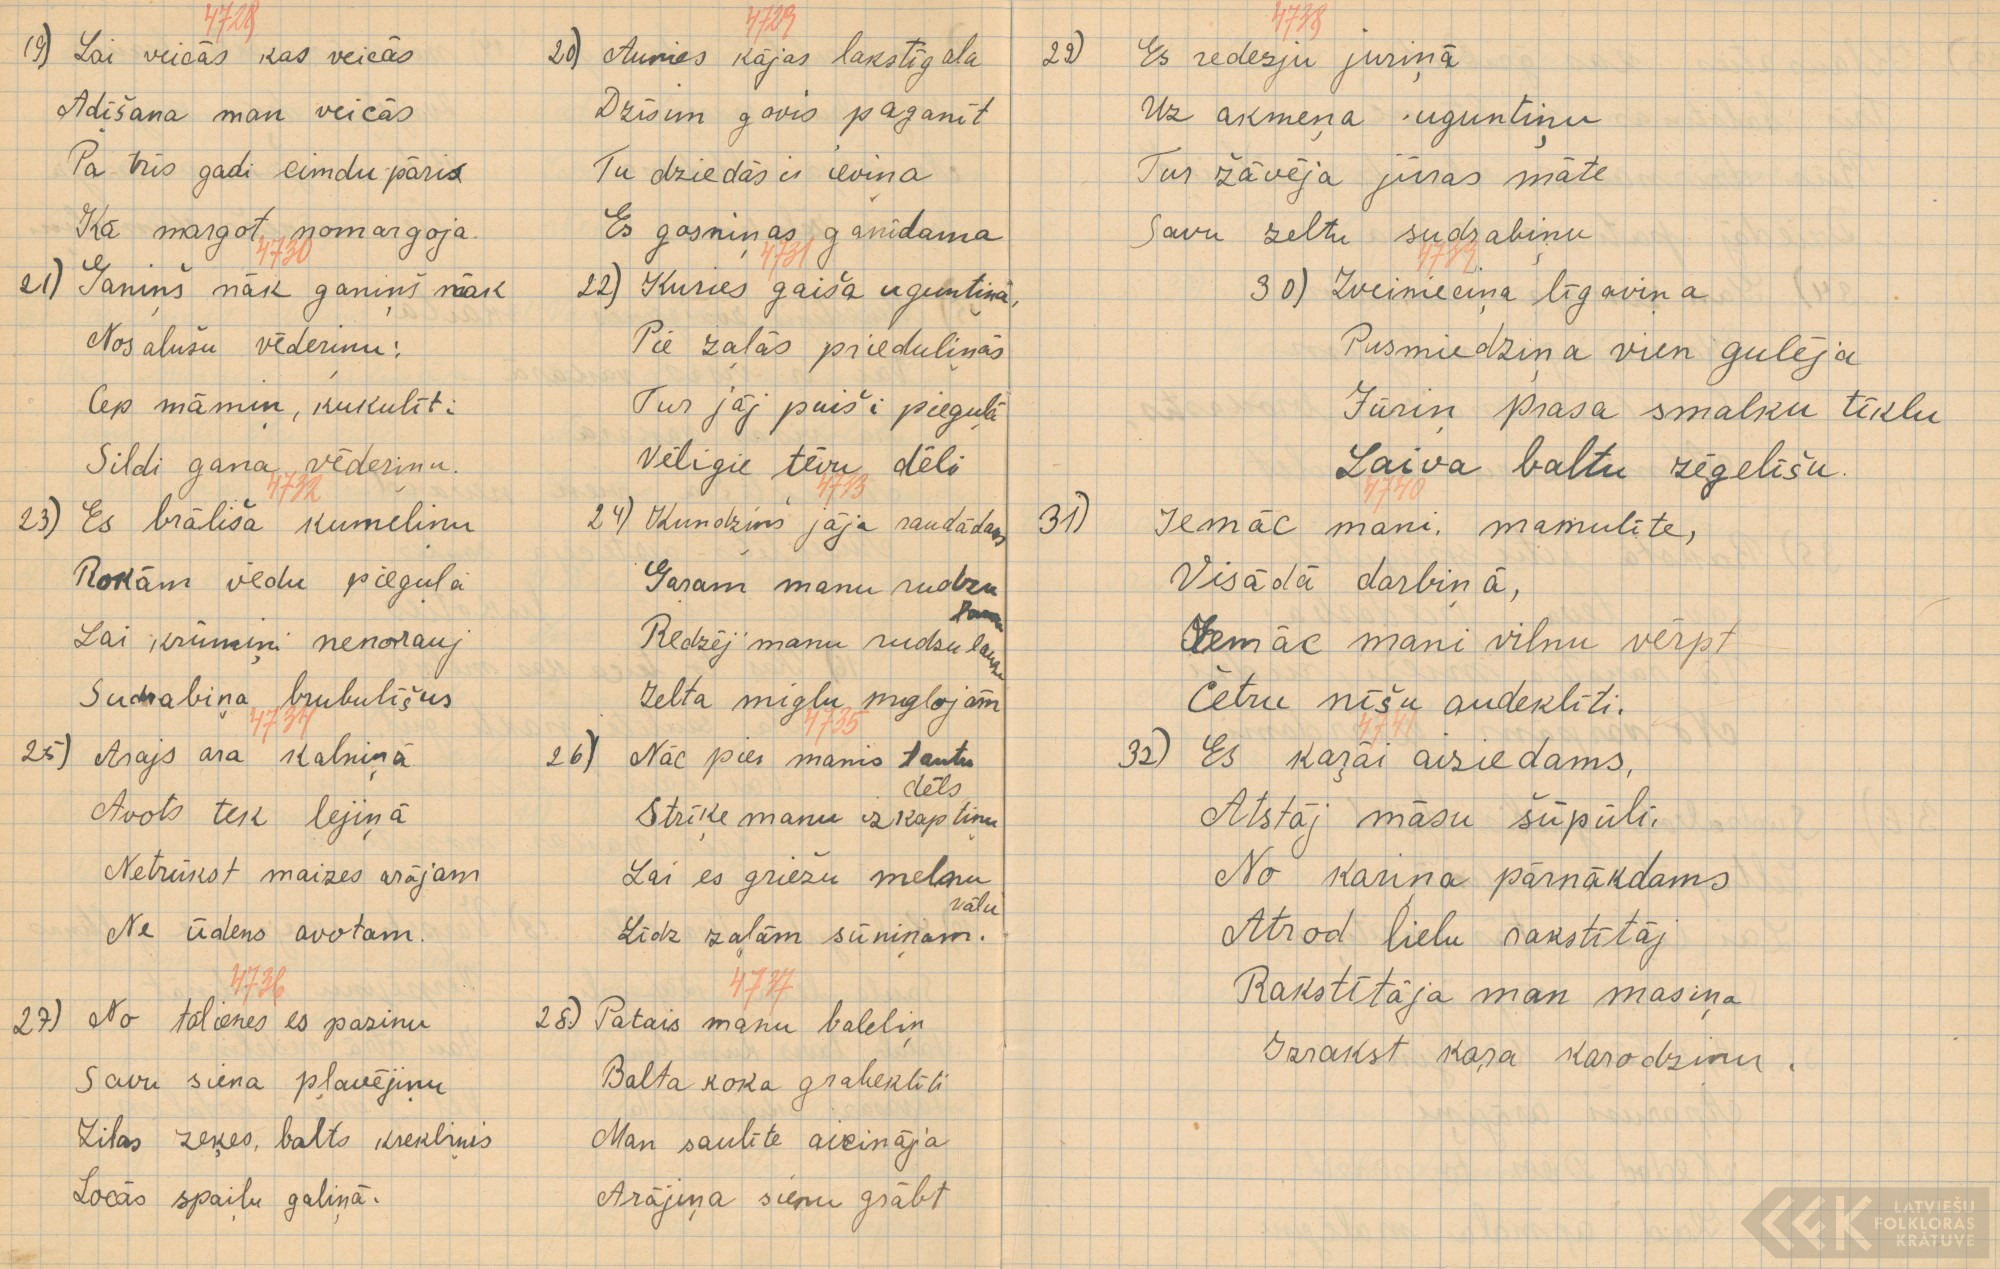 4728
19) Lai veicās kas veicās
Adīšana man veicās
Pa trīs gadi cimdu pāris
Kā margot nomargoja.
4729
20) Aunies kājas lakstīgala
Dzīsim govis paganīt
Tu dziedāsis ieviņa
Es gosniņas ganīdama
4730
21) Ganiņš nāk ganiņš nāk
Nosalušu vēderiņu:
Cep māmiņ, kukulīti
Sildi gana vēderiņu.
4731
22) Kuries gaiša uguntiņā,
Pie zaļās prieduliņās
Tur jāj puiši pieguļā
Vēlīgie tēvu dēli
4732
23) Es brālīša kumeliņu
Rokām vedu pieguļā
Lai krūmiņi nenorauj
Sudrabiņa brubulīšus
4733
24) Kundziņš jāja raudādams
Garam manu rudzu
Redzēj' manu rudzu lauku
Zelta miglu miglojam
4734
25) Arajs ara kalniņā
Avots tek lejiņā
Netrūkst maizes arājam
Ne ūdens avotam.
4735
26) Nāc pies manis tautu
dēls
Strīķe manu izkaptiņu
Lai es griežu melnu
vālu
Līdz zaļām sūniņam.
4736
27) No tālienes es pazinu
Savu siena pļavējiņu
Zilas zeķes, balts krekliņis
Locās spaiļu galiņā.
4737
28.) Patais manu baleliņ
Balta koka grabeklīti
Man saulīte aicināja
Arājiņa sienu grābt
4738
29) Es redezju juriņā
Uz akmeņa uguntiņu
Tur žāvēja jūras māte
Savu zeltu sudrabiņu
4739
30) Zveinieciņa līgaviņa
Pusmiedziņa vien gulēja
Jūriņ prasa smalku tīklu
Laiva baltu zēgelīšu.
4740
31) Iemāc mani, mamulīte,
Visādā darbiņā,
Iemāc mani vilnu vērpt
Četru nīšu audeklīti.
4741
32) Es kaŗāi aiziedams,
Atstāj māsu šūpūlī.
No kariņa pārnākdams
Atrod lielu rakstītāj
Rakstītāja man masiņa
Izrakst kaŗa karodziņu.
LATVIEŠU
FOLKLORAS
KRĀTUVE